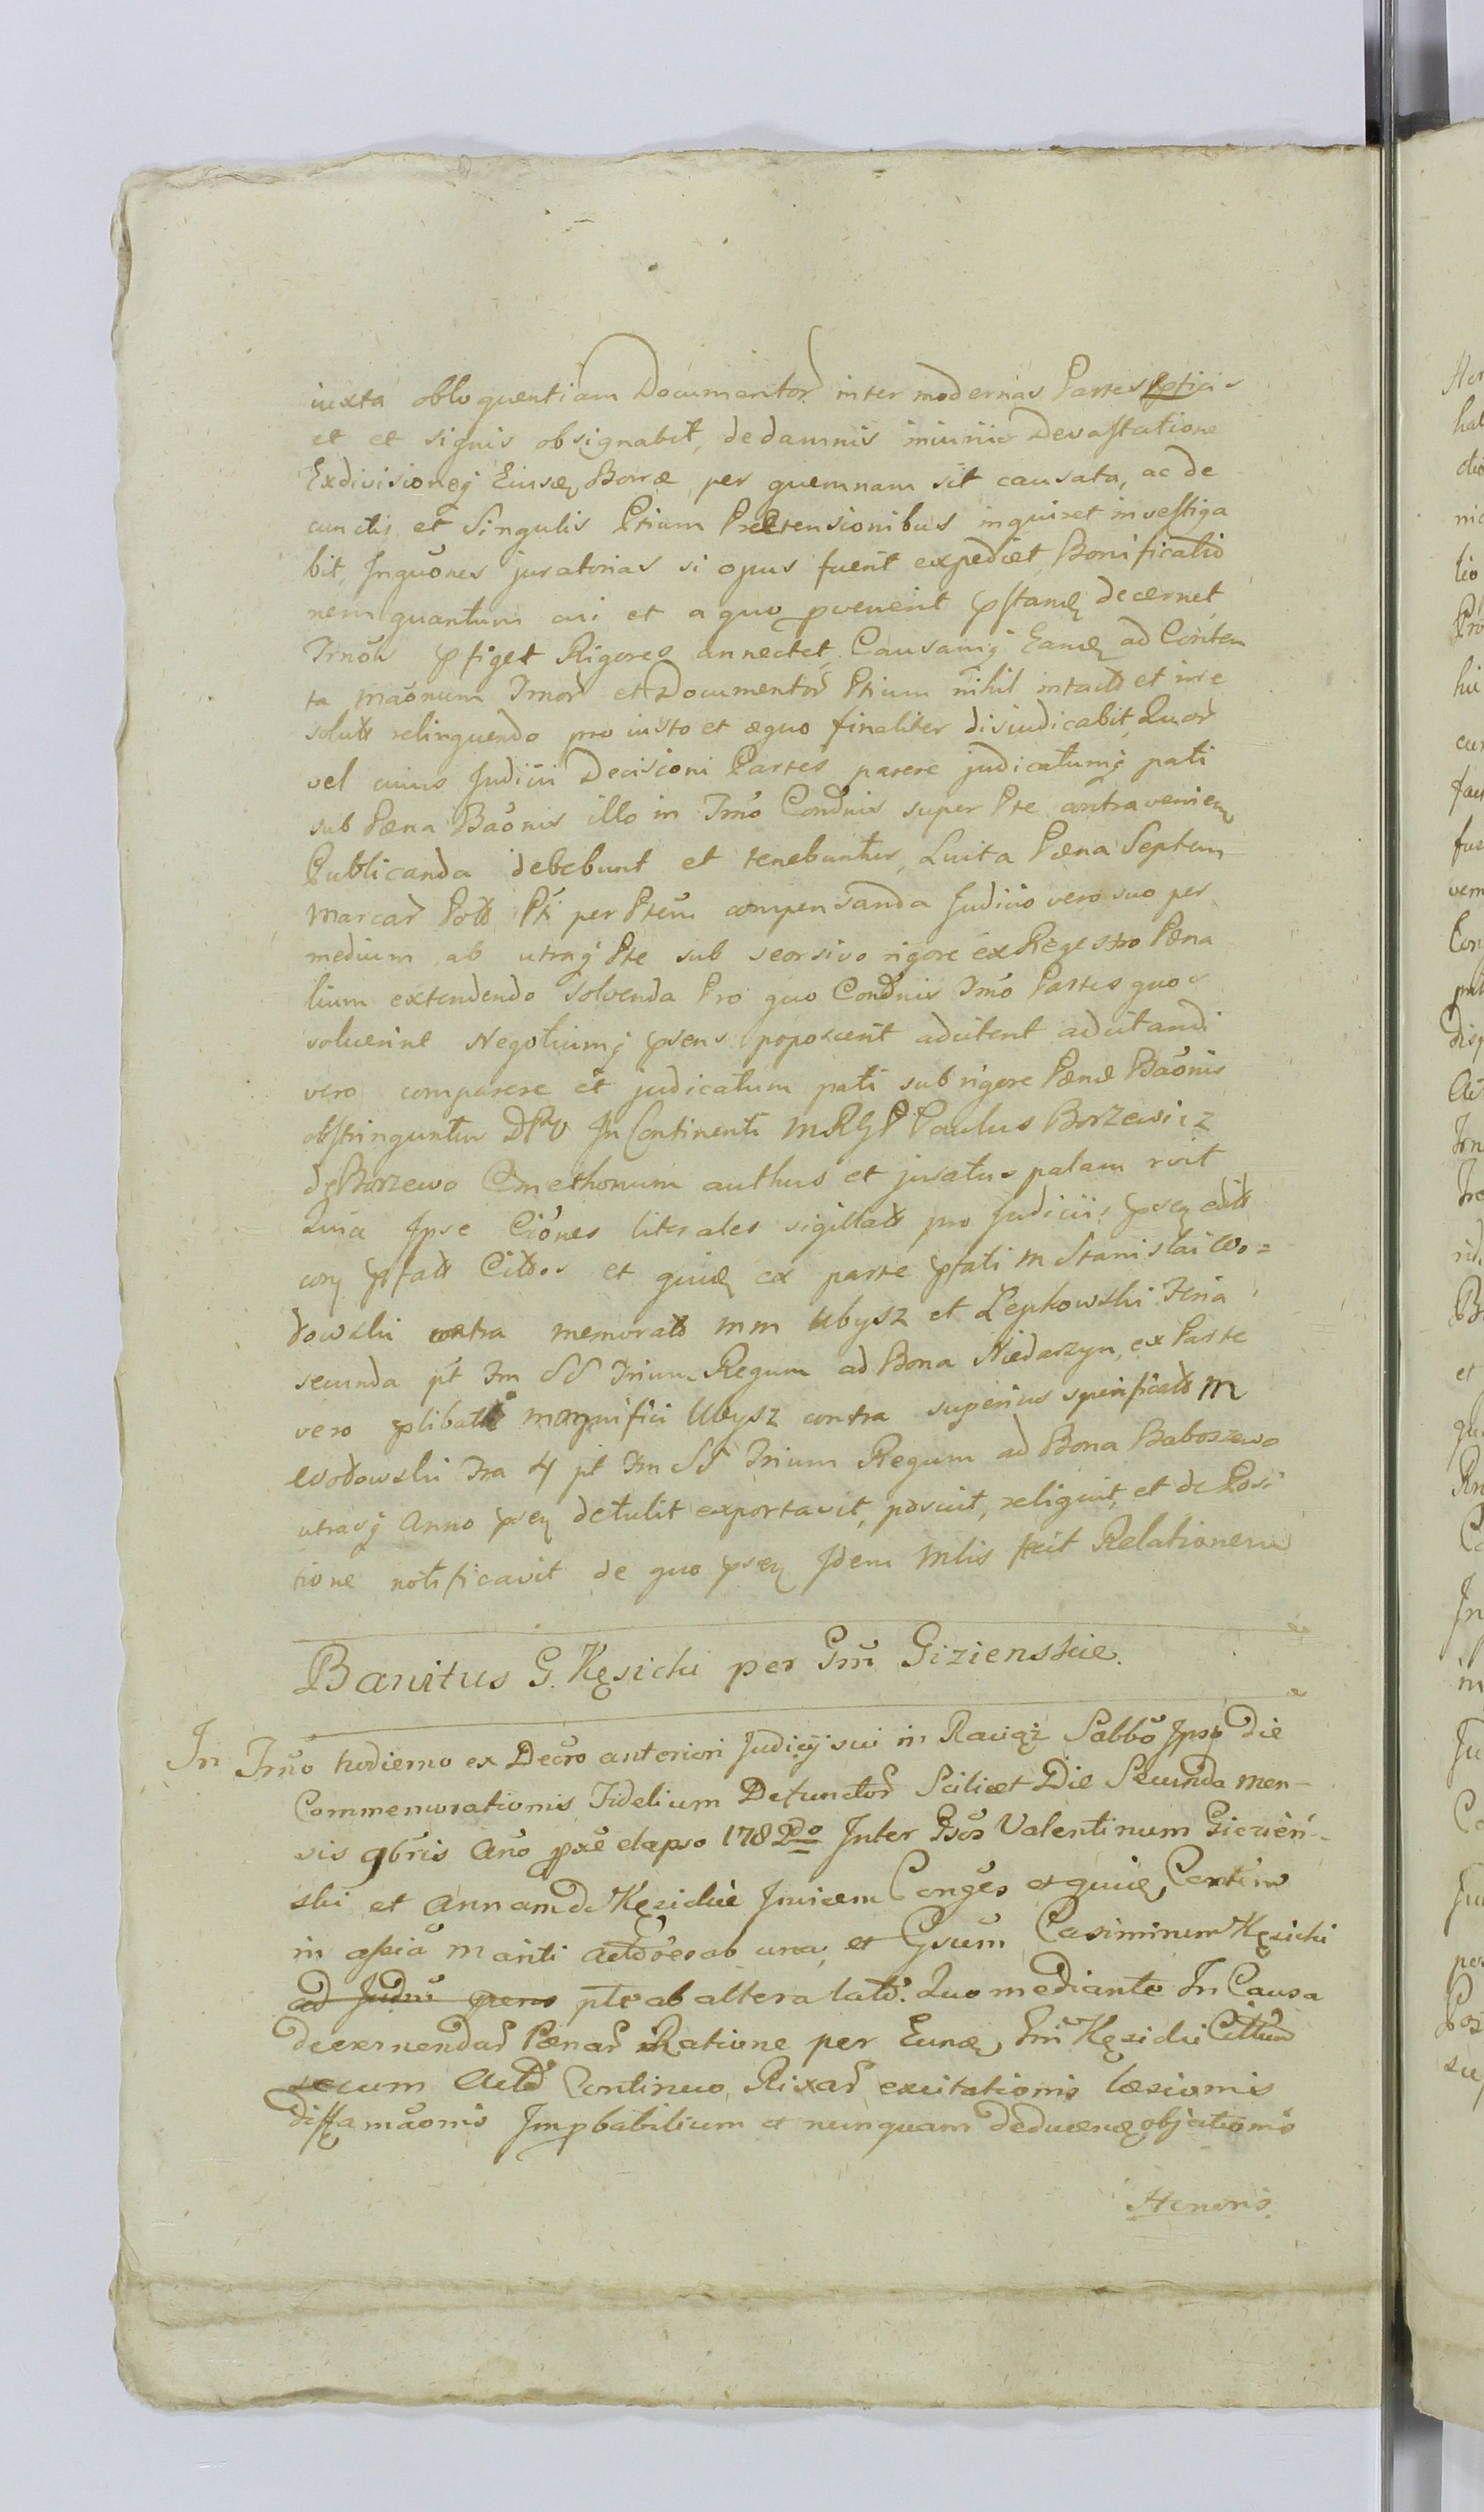 iuxta obloquentiam Documentor inter modernas Partes
et et signis obsignabit, de damnis iniuriis Devastatione
Exdivisioneq Eiusd Borræ per quemnam sit causata, ac de
cunctis et Singulis Ptium Prætensionibus inquiret investiga
bit, Inquões juratorias si opus fuerit expediet, Bonificatio
nem quantum cui et a quo pvenerit pstand decernet
Trnõs pfiget Rigores annectet, Causamq Eand ad Conten
ta Mãonum Trnor et Documentor Ptium nihil intact et irre
solutt relinquendo pro iusto et æquo finaliter disiudicabit, Quor
vel cuius Judicii Decisioni Partes parere judicatumq pati
sub Pæna Bãonis illo in Trnõ Condnis super Pte contravenien
Publicanda debebunt et tenebuntur, Luita Pæna Septem
Marcar Poll Pti per Ptem compensanda Judicio vero suo per
medium ab utraq Pte sub seorsivo rigore ex Regestro Pæna
lium extendendo solvenda Pro quo Condnis Trnõ Partes quos
voluerint Negotiumq psens poposcerit adcitent adcitandi
vero comparere et judicatum pati sub rigore Pænæ Bãonis
obstringuntur DPV In Continenti MRGP Paulus Borzewicz
de Borzewo Cmethonum authus et juratus palam rvit
Quia Ipse Ciones literales sigillatt pro Judiciis psen editt
con pfatt Cittos et quid ex parte pfati M Stanislai Wo=
dowski contra memoratt MM Ubysz et Lepkowski Fria
secunda pt Fm SS Trium Regum ad Bona Niedarzyn, ex Parte
vero plibati Magnifici Ubysz contra superius specificatt M
Wodowski Fra 4 pt Fm SS Trium Regum ad Bona Baboszewo
utrasq Anno psen detulit exportavit, posuit, reliquit, et de Posi
tione notificavit de quo psen Idem Mlis fecit Relationem
Banitus G. Kęsicki per Gm Gizienskie.
In Trnõ hodierno ex Decro anteriori Judicij sui in Raciąż Sabbõ Ipso die
Commemorationis Fidelium Defunctor Scilicet Die Secunda Men-
sis 9bris Anõ pxe elapso 1782do Inter Gsos Valentinum Gizień-
ski et Annam de Kęsickie Invicem Conges et quid, Contim
in assia Mariti Actores ab una, et Gsum Casimirum Kęsicki
ad Judm psens pte ab altera latt. Quo mediante In Causa
decernendar Pænar Ratione per Eund, Gm Kęsicki Cittum
secum Actt Continuo, Rixar excitationis læsionis
diffamãonis Impbabilium et nunquam deducend objectionis
Honoris.